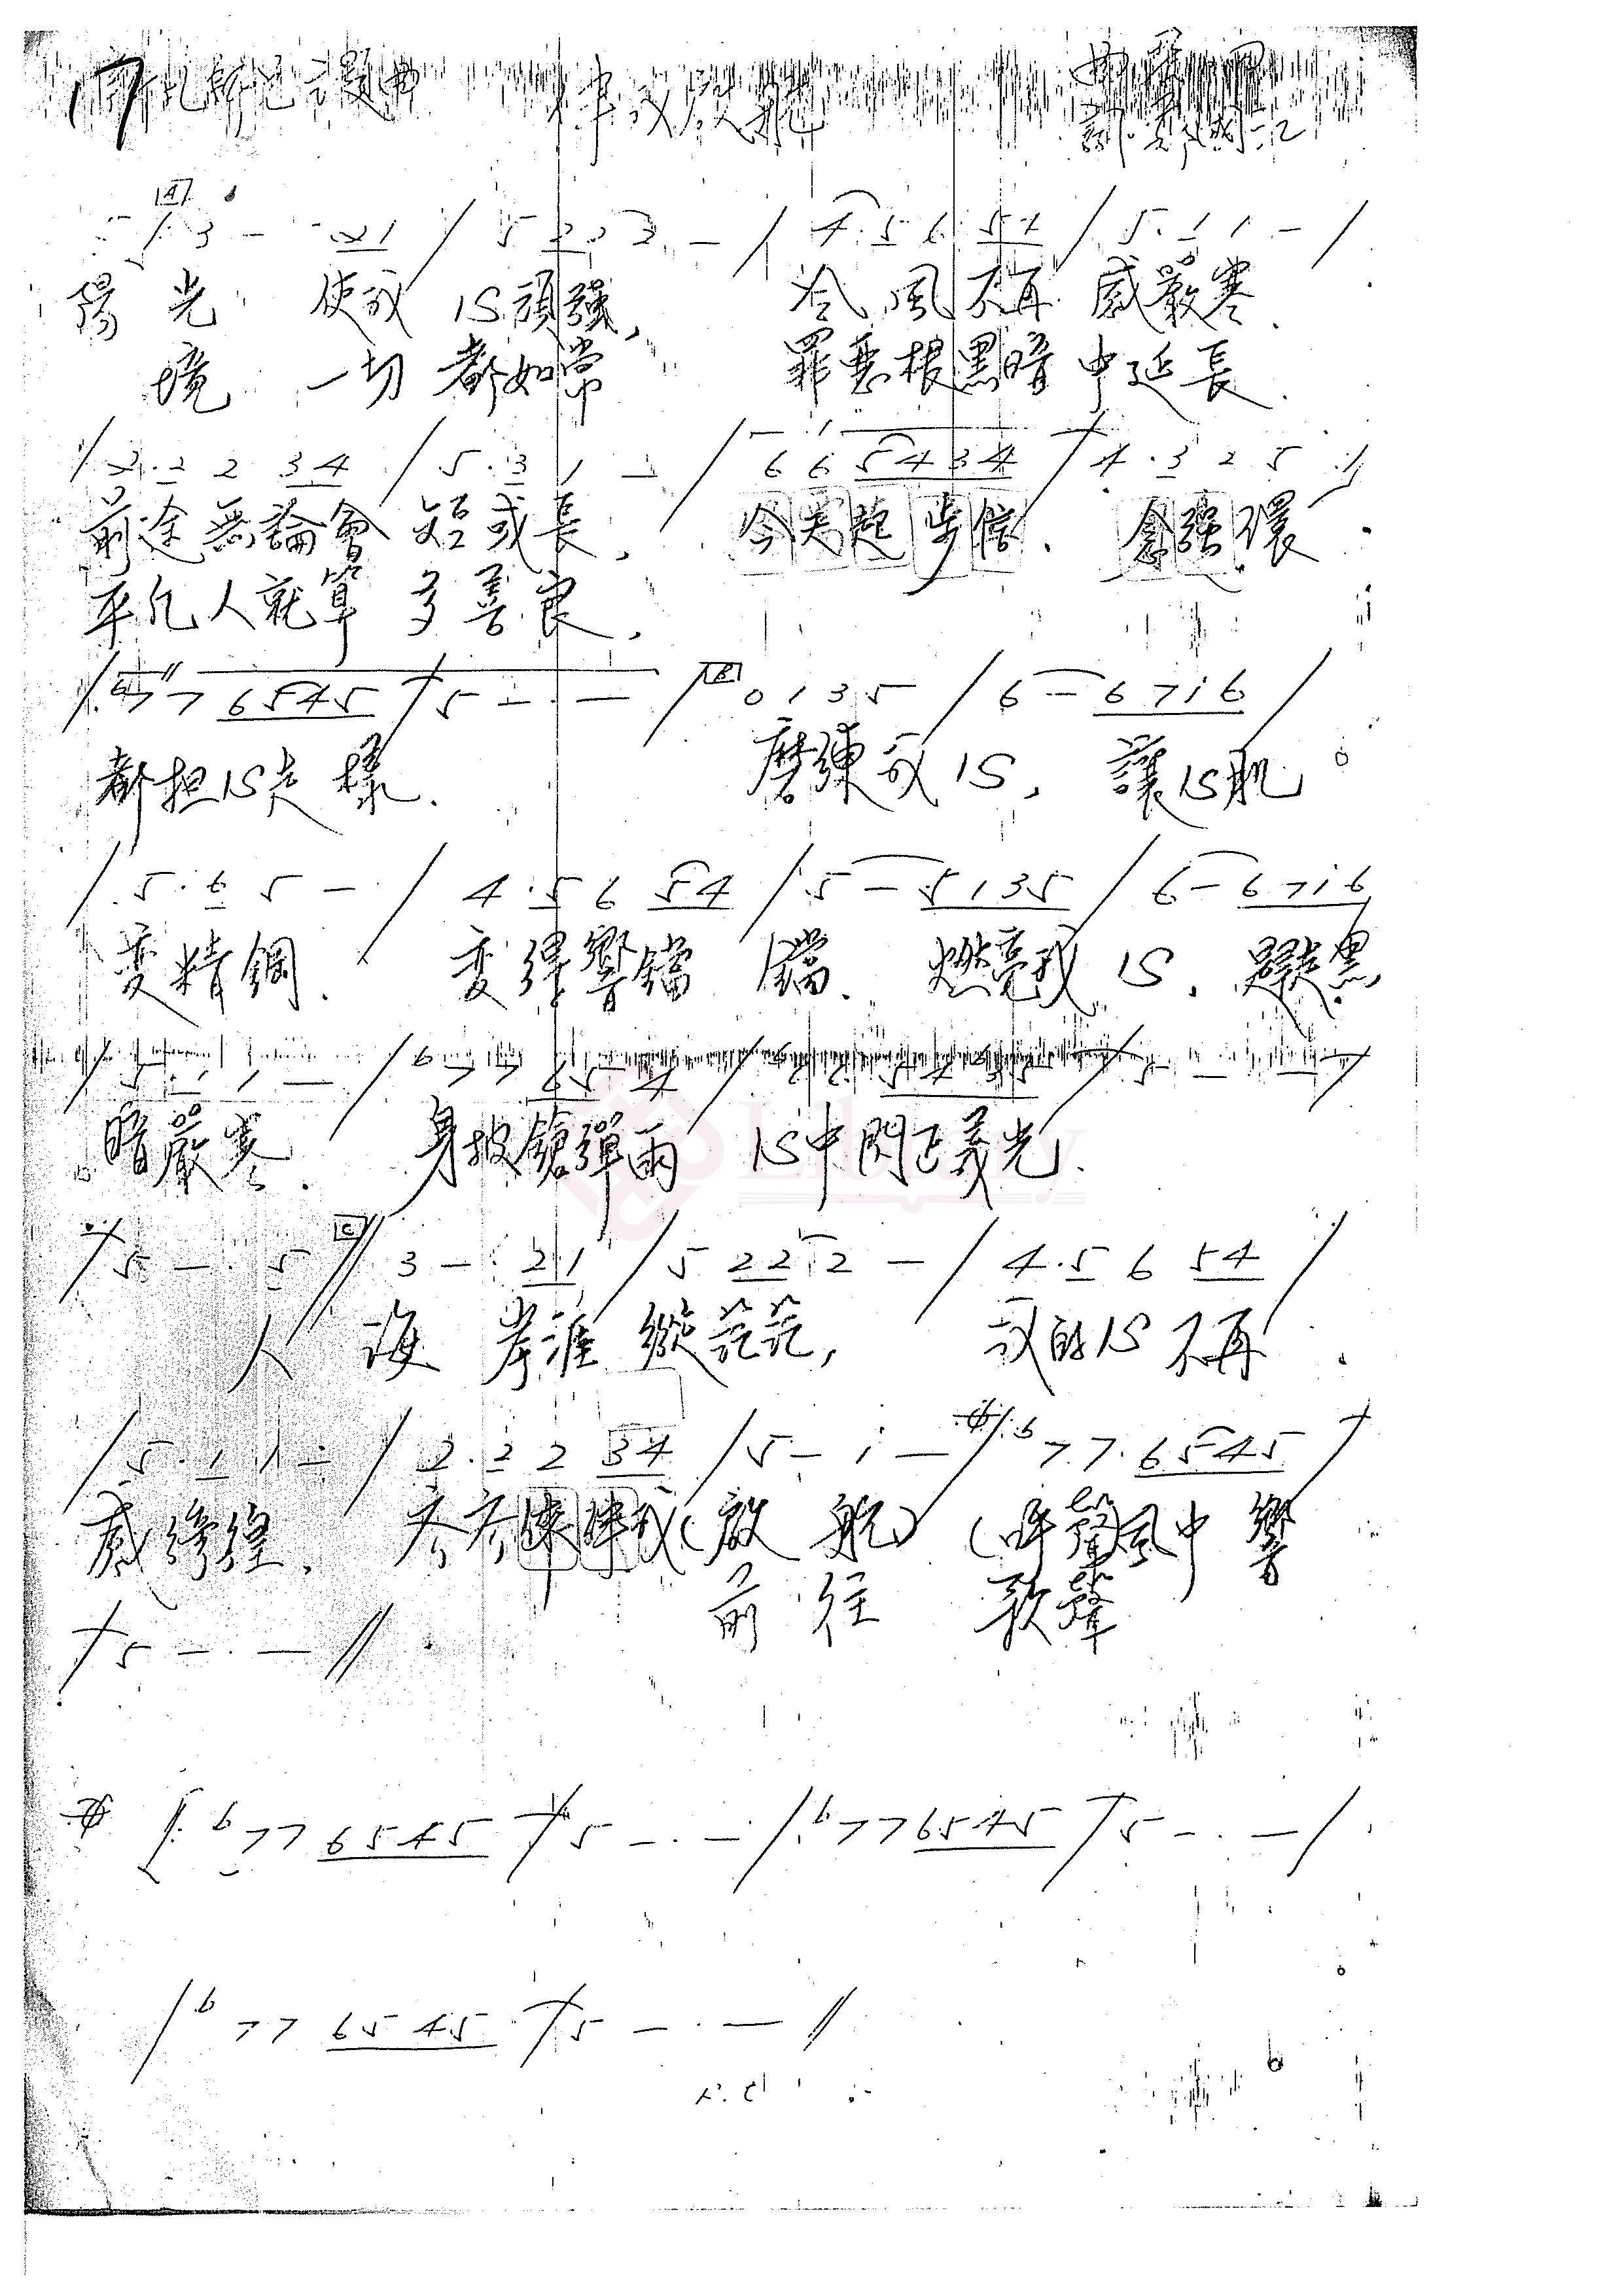 17
伴我啟航
[A]
3 - 2 1 / 5 2 2 2 - / 4 . 5 6 5 4 / 5 . 1 1 - /
陽光 使我 心頑強, 冷風不再 感嚴寒.
境 一切 都如常 罪惡根黑暗 中延長.
/ 2 . 2 2 3 4 / 5 . 3 1 - / 6 6 5 4 3 4 / 4 . 3 2 5
前途無論會 短或長, 今天起步信. 念強環
平凡人就算 多善良,
/ b7 7 6 5 4 5 / 5 - . - / [B] 0 1 3 5 / 6 - 6 7 i 6 /
都担心走樣. 磨練我心, 讓心肌
/ 5 . 6 5 - / 4 . 5 6 5 4 / 5 - 5 1 3 5 / 6 - 6 7 i 6
變精鋼. 變得響鐺 鐺. 燃亮我 心, 趕走黑
/ 5 . 1 1 - / b7 7 6 5 4 /
暗嚴寒. 身披鎗彈雨 心中閃正義光.
/ 5 - . 5 // [C] 3 - 2 1 / 5 2 2 2 - / 4 . 5 6 5 4 /
人 海 岸涯 縱茫茫, 我的心 不再
/ 5 . 1 1 - / 2 . 2 2 3 4 / 5 - i - / b7 7 . 6 5 4 5 /
感徬徨. 齊齊陪伴我(啟 航) (呼聲風中 響
前 往 歌聲
/ 5 - . - //
b7 7 6 5 4 5 / 5 - . - / b7 7 6 5 4 5 / 5 - . - /
/ b7 7 6 5 4 5 / 5 - . - //
Library